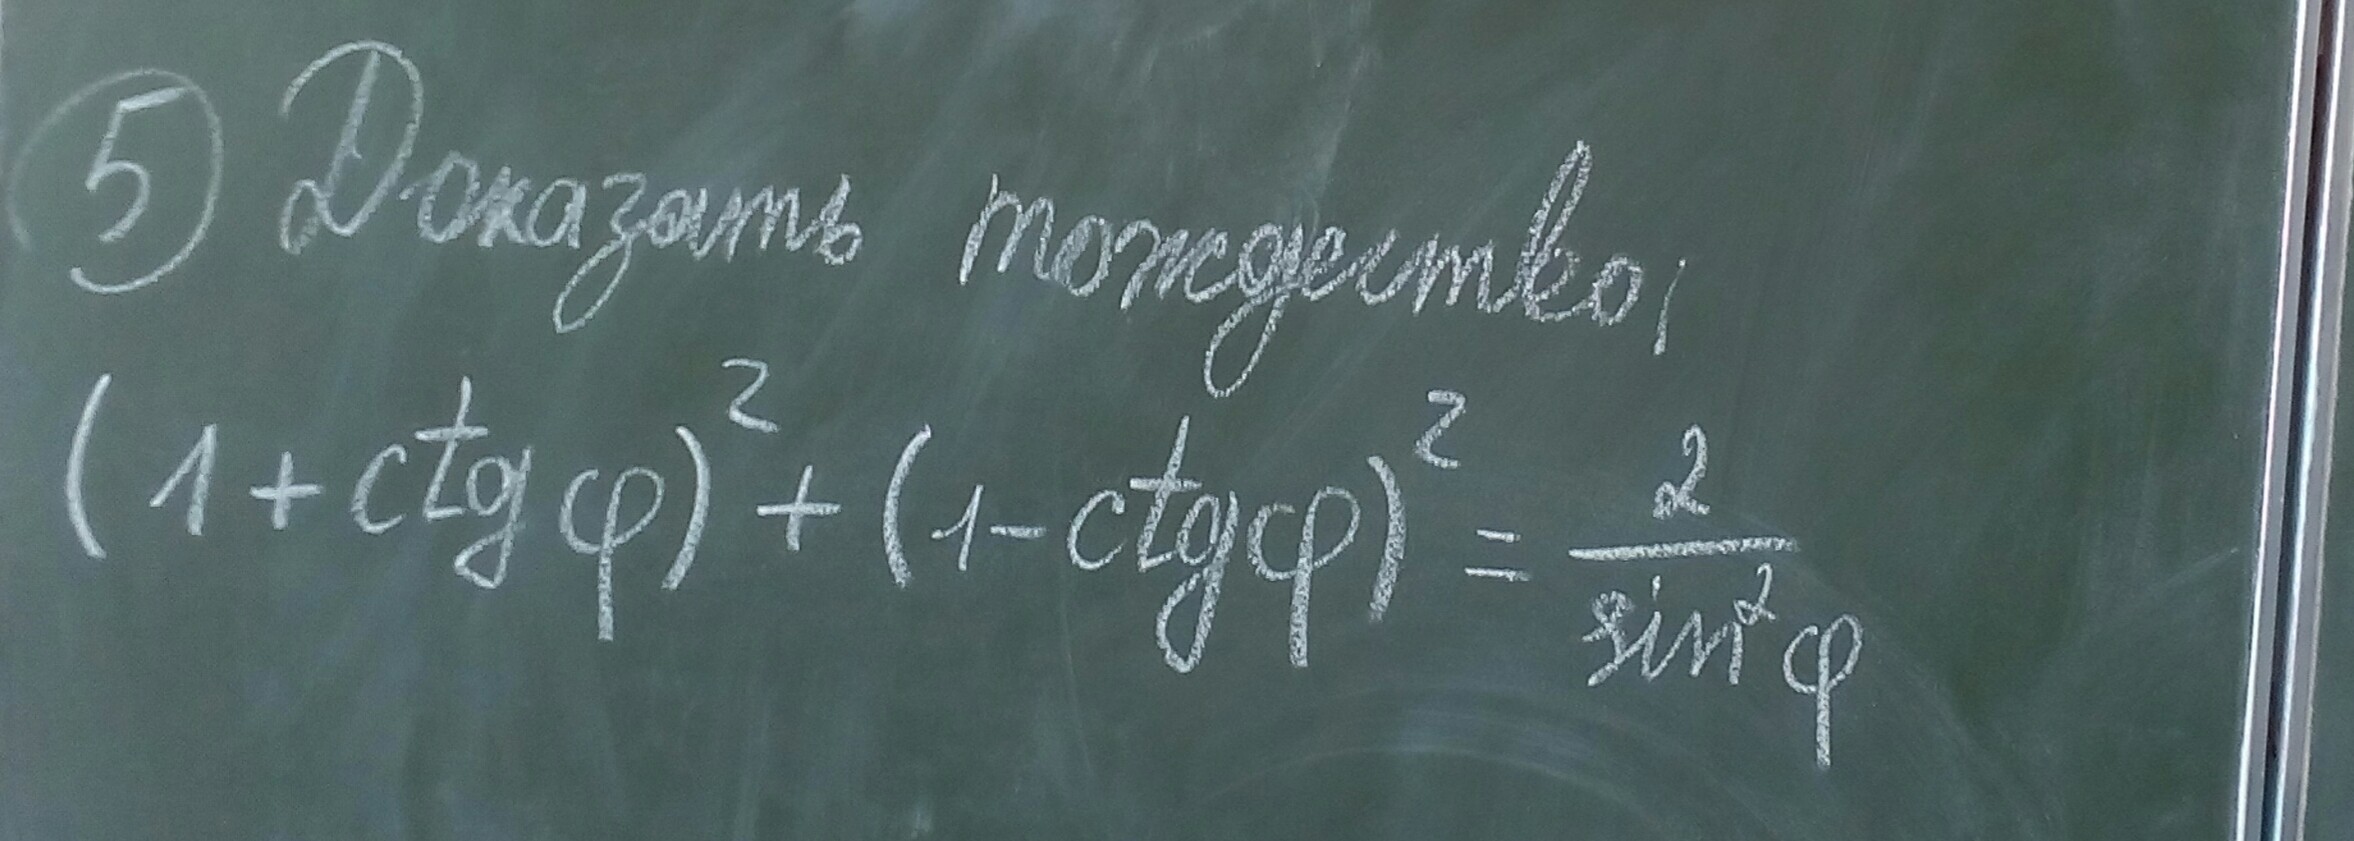 ⑤ Доказать тождество,
(1+ctg φ)² + (1-ctgφ)² = 2/sin²φ